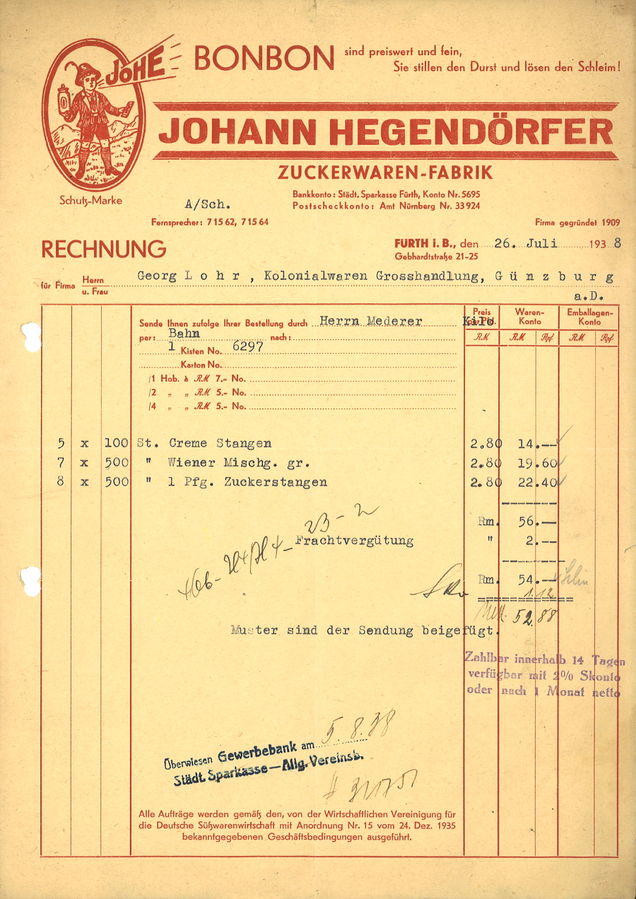 JOHE BONBON sind preiswert und fein,
Sie stillen den Durst und lösen den Schleim!
JOHANN HEGENDÖRFER
ZUCKERWAREN-FABRIK
Schutz-Marke
Bankkonto: Städt. Sparkasse Fürth, Konto Nr. 5695
A/Sch.
Postscheckkonto: Amt Nürnberg Nr. 33924
Fernsprecher: 71562, 71564
Firma gegründet 1909
RECHNUNG
FÜRTH i. B., den 26. Juli 1938
Gebhardtstraße 21-25
für Firma Herrn u. Frau Georg Lohr, Kolonialwaren Grosshandlung, Günzburg
a.D.
Sende Ihnen zufolge Ihrer Bestellung durch Herrn Mederer
per: Bahn nach:
1 Kisten No. 6297
Karton No.
/1 Hob. à RM 7.- No.
/2 " " RM 5.- No.
/4 " " RM 5.- No.
Preis Kilo
Waren-Konto
Emballagen-Konto
RM RM Rpf RM Rpf
5 x 100 St. Creme Stangen 2.80 14.--
7 x 500 " Wiener Mischg. gr. 2.80 19.60
8 x 500 " 1 Pfg. Zuckerstangen 2.80 22.40
Rm. 56.--
Frachtvergütung " 2.--
23-2
Rm. 54.--
1.12
52.88
Muster sind der Sendung beigefügt.
Zahlbar innerhalb 14 Tagen
verfügbar mit 2% Skonto
oder nach 1 Monat netto
Überwiesen Gewerbebank am 5.8.38
Städt. Sparkasse—Allg. Vereinsb.
Alle Aufträge werden gemäß den, von der Wirtschaftlichen Vereinigung für
die Deutsche Süßwarenwirtschaft mit Anordnung Nr. 15 vom 24. Dez. 1935
bekanntgegebenen Geschäftsbedingungen ausgeführt.